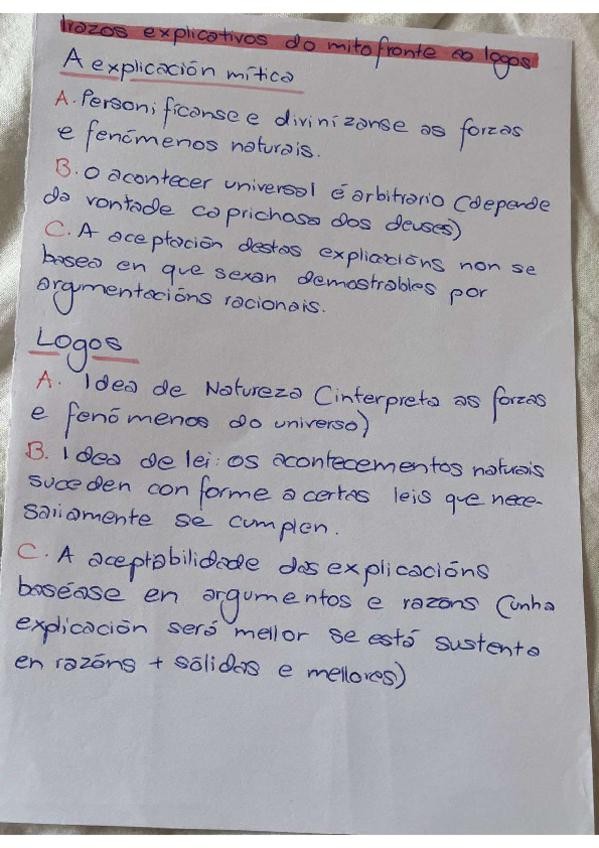 Trazos explicativos do mito fronte ao logos
A explicación mítica
A. Personifícanse e divinízanse as forzas
e fenómenos naturais.
B. O acontecer universal é arbitrario (depende
da vontade caprichosa dos deuses)
C. A aceptación destas explicacións non se
basea en que sexan demostrables por
argumentacións racionais.
Logos
A. Idea de Natureza (interpreta as forzas
e fenómenos do universo)
B. Idea de lei: os acontecementos naturais
suceden conforme a certas leis que nece-
sariamente se cumplen.
C. A aceptabilidade das explicacións
baséase en argumentos e razóns (unha
explicación será mellor se está sustenta
en razóns + sólidas e mellores)